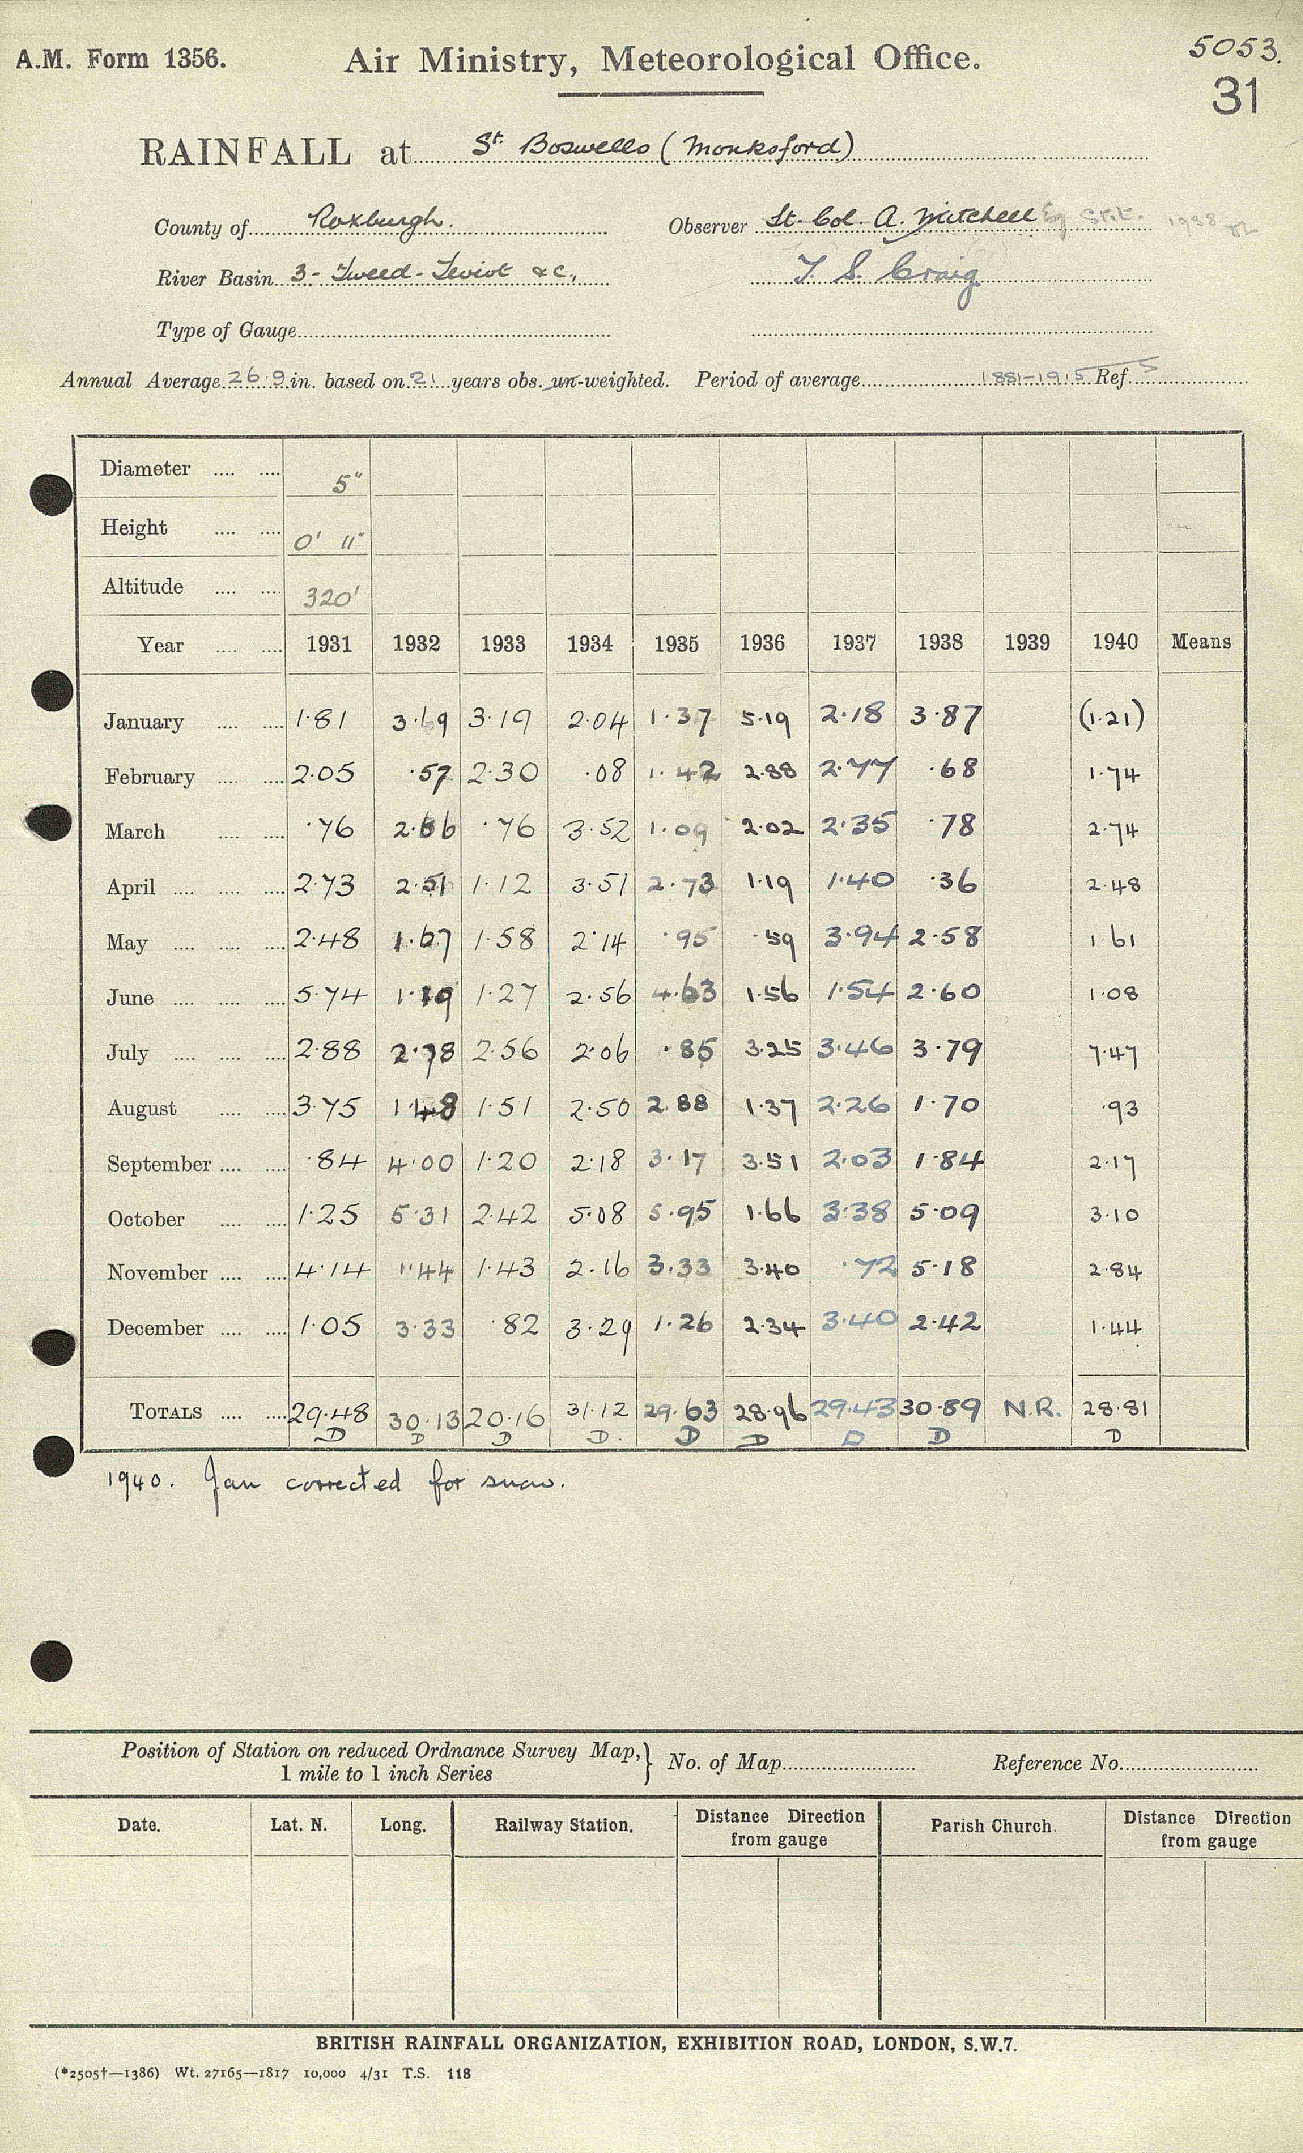 A.M. Form 1356. Air Ministry, Meteorological Office. 5053.
31
RAINFALL at St. Boswells (Monksford)
County of Roxburgh. Observer Lt. Col. A. Mitchell
River Basin 3 - Tweed - Teviot &c., T. S. Craig
Type of Gauge
Annual Average 26.9 in. based on 21 years obs. un-weighted. Period of average 1881-1915 Ref. 5
Diameter 5"
Height 0' 11"
Altitude 320'
Year 1931 1932 1933 1934 1935 1936 1937 1938 1939 1940 Means
January 1.81 3.19 3.19 2.04 1.37 5.19 2.18 3.87 (1.21)
February 2.05 .57 2.30 .08 1.42 2.88 2.77 .68 1.74
March .76 2.66 .76 3.52 1.09 2.02 2.35 .78 2.74
April 2.73 2.51 1.12 3.51 2.73 1.19 1.40 .36 2.48
May 2.48 1.67 1.58 2.14 .95 .59 3.94 2.58 1.61
June 5.74 1.19 1.27 2.56 4.63 1.56 1.54 2.60 1.08
July 2.88 2.78 2.56 2.06 .85 3.25 3.46 3.79 7.47
August 3.75 1.48 1.51 2.50 2.88 1.37 2.26 1.70 .93
September .84 4.00 1.20 2.18 3.17 3.51 2.03 1.84 2.17
October 1.25 5.31 2.42 5.08 5.95 1.66 3.38 5.09 3.10
November 4.14 1.44 1.43 2.16 3.33 3.40 .72 5.18 2.84
December 1.05 3.33 .82 3.29 1.26 2.34 3.40 2.42 1.44
TOTALS 29.48 30.13 20.16 31.12 29.63 28.96 29.43 30.89 N.R. 28.81
D D D D. D D D D D
1940. Jan corrected for snow.
Position of Station on reduced Ordnance Survey Map, } No. of Map Reference No.
1 mile to 1 inch Series
Date. Lat. N. Long. Railway Station. Distance Direction from gauge Parish Church. Distance Direction from gauge
BRITISH RAINFALL ORGANIZATION, EXHIBITION ROAD, LONDON, S.W.7.
(*2505†—1386) Wt. 27165—1817 10,000 4/31 T.S. 118